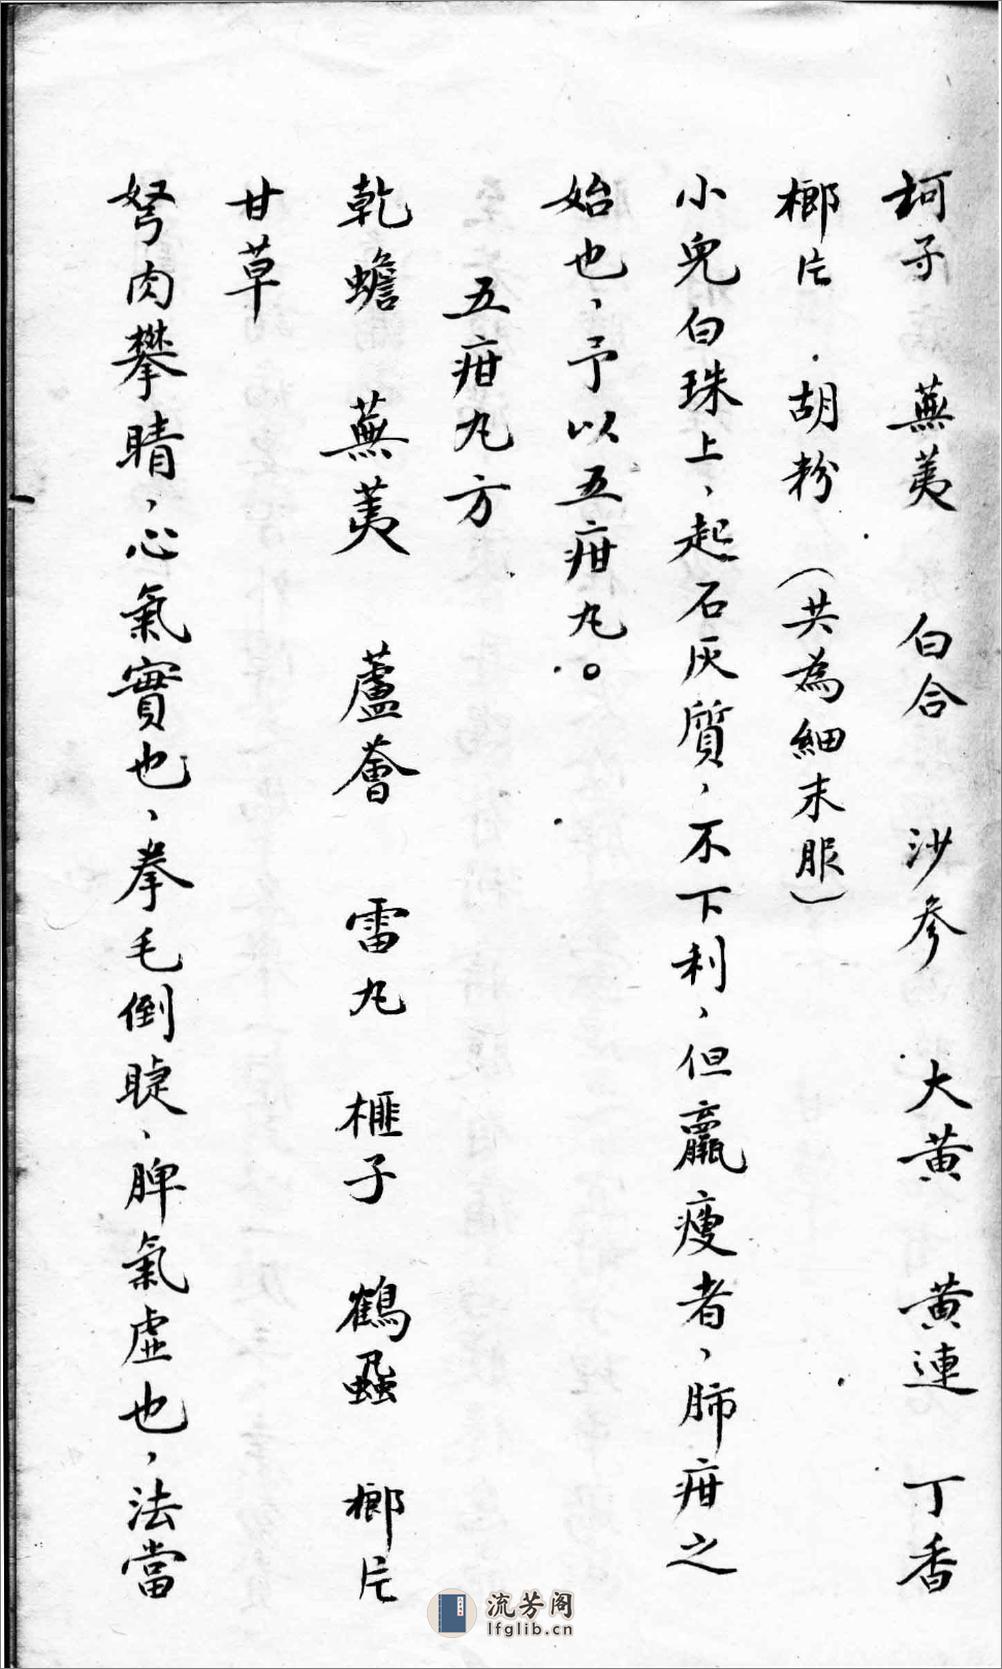 柯子　蕪荑　白合　沙參　大黃　黃連　丁香
榔片　胡粉　（共為細末服）
小兒白珠上、起石灰質，不下利，但羸瘦者，肺疳之
始也，予以五疳丸。
五疳丸方
乾蟾　蕪荑　蘆薈　雷丸　榧子　鶴蝨　榔片
甘草
胬肉攀睛，心氣實也，拳毛倒睫，脾氣虛也，法當
流芳阁
lfglib.cn